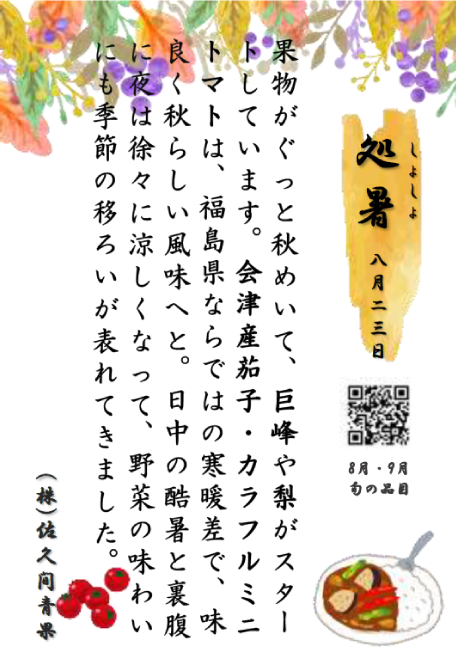 しょしょ
処暑
八月二三日
8月・9月
旬の品目
果物がぐっと秋めいて、巨峰や梨がスター
トしています。会津産茄子・カラフルミニ
トマトは、福島県ならではの寒暖差で、味
良く秋らしい風味へと。日中の酷暑と裏腹
に夜は徐々に涼しくなって、野菜の味わい
にも季節の移ろいが表れてきました。
(株)佐久間青果